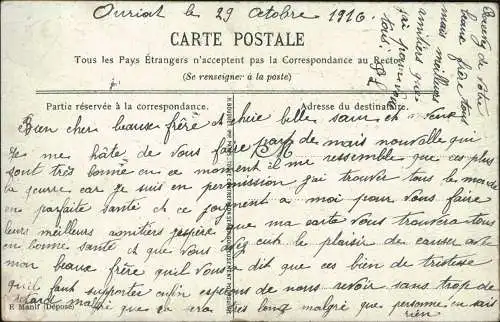 Ouriat le 29 octobre 1916
CARTE POSTALE
Tous les Pays Étrangers n'acceptent pas la Correspondance au Recto
(Se renseigner à la poste)
Partie réservée à la correspondance.
Adresse du destinataire.
Bien cher beaux frère et chère belle sœur et
Je me hâte de vous faire part de mais nouvelle qui
sont très bonne en ce moment il me ressemble que ces plus
la guerre car je suis en permission j'ai trouver tous le monde
en parfaite santé et ce joyment a moi pour vous faire
leurs meilleurs amitiers j'espère que ma carte vous trouvera tous
en bonne santé et que vous cut le plaisir de causer avec
mon beaux frère qu'il vous a dit que ces bien de tristesse
qu'il faut supporter enfin espérons de nous revoir sans trop de
retard malgré que sa era très long malgré que personne en sais
rien
de votre
beau frère tous
mais meilleurs
amitiers que
j'ai pour vous
tous
E Manif (Déposé)